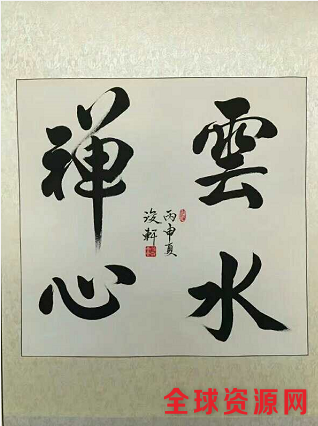 雲水
禅心
丙申夏
浚軒
全球资源网